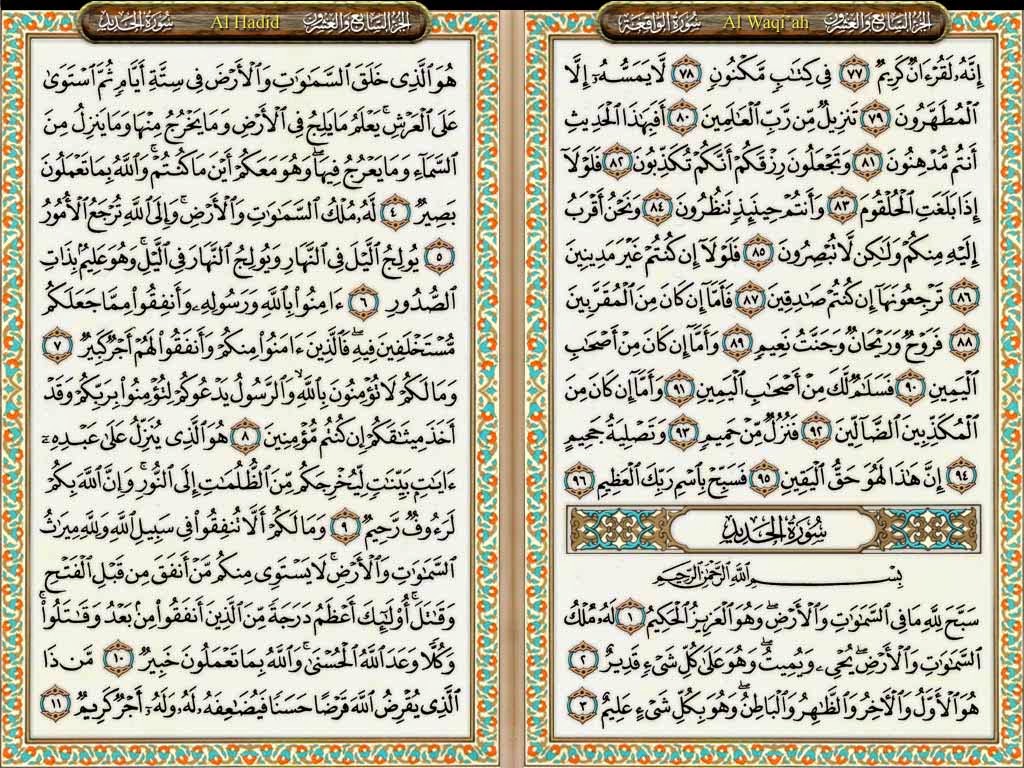 سُورَةُ الوَاقِعَةِ Al Waqi'ah الجزء السابع والعشرون
إِنَّهُۥ لَقُرْءَانٌ كَرِيمٌ ٧٧ فِى كِتَٰبٍ مَّكْنُونٍ ٧٨ لَّا يَمَسُّهُۥٓ إِلَّا
ٱلْمُطَهَّرُونَ ٧٩ تَنزِيلٌ مِّن رَّبِّ ٱلْعَٰلَمِينَ ٨٠ أَفَبِهَٰذَا ٱلْحَدِيثِ
أَنتُم مُّدْهِنُونَ ٨١ وَتَجْعَلُونَ رِزْقَكُمْ أَنَّكُمْ تُكَذِّبُونَ ٨٢ فَلَوْلَآ
إِذَا بَلَغَتِ ٱلْحُلْقُومَ ٨٣ وَأَنتُمْ حِينَئِذٍ تَنظُرُونَ ٨٤ وَنَحْنُ أَقْرَبُ
إِلَيْهِ مِنكُمْ وَلَٰكِن لَّا تُبْصِرُونَ ٨٥ فَلَوْلَآ إِن كُنتُمْ غَيْرَ مَدِينِينَ
٨٦ تَرْجِعُونَهَآ إِن كُنتُمْ صَٰدِقِينَ ٨٧ فَأَمَّآ إِن كَانَ مِنَ ٱلْمُقَرَّبِينَ
٨٨ فَرَوْحٌ وَرَيْحَانٌ وَجَنَّتُ نَعِيمٍ ٨٩ وَأَمَّآ إِن كَانَ مِنْ أَصْحَٰبِ
ٱلْيَمِينِ ٩٠ فَسَلَٰمٌ لَّكَ مِنْ أَصْحَٰبِ ٱلْيَمِينِ ٩١ وَأَمَّآ إِن كَانَ مِنَ
ٱلْمُكَذِّبِينَ ٱلضَّآلِّينَ ٩٢ فَنُزُلٌ مِّنْ حَمِيمٍ ٩٣ وَتَصْلِيَةُ جَحِيمٍ
٩٤ إِنَّ هَٰذَا لَهُوَ حَقُّ ٱلْيَقِينِ ٩٥ فَسَبِّحْ بِٱسْمِ رَبِّكَ ٱلْعَظِيمِ ٩٦
سُورَةُ الحَدِيدِ
بِسْمِ ٱللَّهِ ٱلرَّحْمَٰنِ ٱلرَّحِيمِ
سَبَّحَ لِلَّهِ مَا فِى ٱلسَّمَٰوَٰتِ وَٱلْأَرْضِ ۖ وَهُوَ ٱلْعَزِيزُ ٱلْحَكِيمُ ١ لَهُۥ مُلْكُ
ٱلسَّمَٰوَٰتِ وَٱلْأَرْضِ ۖ يُحْىِۦ وَيُمِيتُ ۖ وَهُوَ عَلَىٰ كُلِّ شَىْءٍ قَدِيرٌ ٢
هُوَ ٱلْأَوَّلُ وَٱلْءَاخِرُ وَٱلظَّٰهِرُ وَٱلْبَاطِنُ ۖ وَهُوَ بِكُلِّ شَىْءٍ عَلِيمٌ ٣
سُورَةُ الحَدِيدِ Al Hadid الجزء السابع والعشرون
هُوَ ٱلَّذِى خَلَقَ ٱلسَّمَٰوَٰتِ وَٱلْأَرْضَ فِى سِتَّةِ أَيَّامٍ ثُمَّ ٱسْتَوَىٰ
عَلَى ٱلْعَرْشِ ۚ يَعْلَمُ مَا يَلِجُ فِى ٱلْأَرْضِ وَمَا يَخْرُجُ مِنْهَا وَمَا يَنزِلُ مِنَ
ٱلسَّمَآءِ وَمَا يَعْرُجُ فِيهَا ۖ وَهُوَ مَعَكُمْ أَيْنَ مَا كُنتُمْ ۚ وَٱللَّهُ بِمَا تَعْمَلُونَ
بَصِيرٌ ٤ لَّهُۥ مُلْكُ ٱلسَّمَٰوَٰتِ وَٱلْأَرْضِ ۚ وَإِلَى ٱللَّهِ تُرْجَعُ ٱلْأُمُورُ
٥ يُولِجُ ٱلَّيْلَ فِى ٱلنَّهَارِ وَيُولِجُ ٱلنَّهَارَ فِى ٱلَّيْلِ ۚ وَهُوَ عَلِيمٌۢ بِذَاتِ
ٱلصُّدُورِ ٦ ءَامِنُوا۟ بِٱللَّهِ وَرَسُولِهِۦ وَأَنفِقُوا۟ مِمَّا جَعَلَكُم
مُّسْتَخْلَفِينَ فِيهِ ۖ فَٱلَّذِينَ ءَامَنُوا۟ مِنكُمْ وَأَنفَقُوا۟ لَهُمْ أَجْرٌ كَبِيرٌ ٧
وَمَا لَكُمْ لَا تُؤْمِنُونَ بِٱللَّهِ ۙ وَٱلرَّسُولُ يَدْعُوكُمْ لِتُؤْمِنُوا۟ بِرَبِّكُمْ وَقَدْ
أَخَذَ مِيثَٰقَكُمْ إِن كُنتُم مُّؤْمِنِينَ ٨ هُوَ ٱلَّذِى يُنَزِّلُ عَلَىٰ عَبْدِهِۦٓ
ءَايَٰتٍۭ بَيِّنَٰتٍ لِّيُخْرِجَكُم مِّنَ ٱلظُّلُمَٰتِ إِلَى ٱلنُّورِ ۚ وَإِنَّ ٱللَّهَ بِكُمْ
لَرَءُوفٌ رَّحِيمٌ ٩ وَمَا لَكُمْ أَلَّا تُنفِقُوا۟ فِى سَبِيلِ ٱللَّهِ وَلِلَّهِ مِيرَٰثُ
ٱلسَّمَٰوَٰتِ وَٱلْأَرْضِ ۚ لَا يَسْتَوِى مِنكُم مَّنْ أَنفَقَ مِن قَبْلِ ٱلْفَتْحِ
وَقَٰتَلَ ۚ أُو۟لَٰٓئِكَ أَعْظَمُ دَرَجَةً مِّنَ ٱلَّذِينَ أَنفَقُوا۟ مِنۢ بَعْدُ وَقَٰتَلُوا۟ ۚ
وَكُلًّا وَعَدَ ٱللَّهُ ٱلْحُسْنَىٰ ۚ وَٱللَّهُ بِمَا تَعْمَلُونَ خَبِيرٌ ١٠ مَّن ذَا
ٱلَّذِى يُقْرِضُ ٱللَّهَ قَرْضًا حَسَنًا فَيُضَٰعِفَهُۥ لَهُۥ وَلَهُۥٓ أَجْرٌ كَرِيمٌ ١١